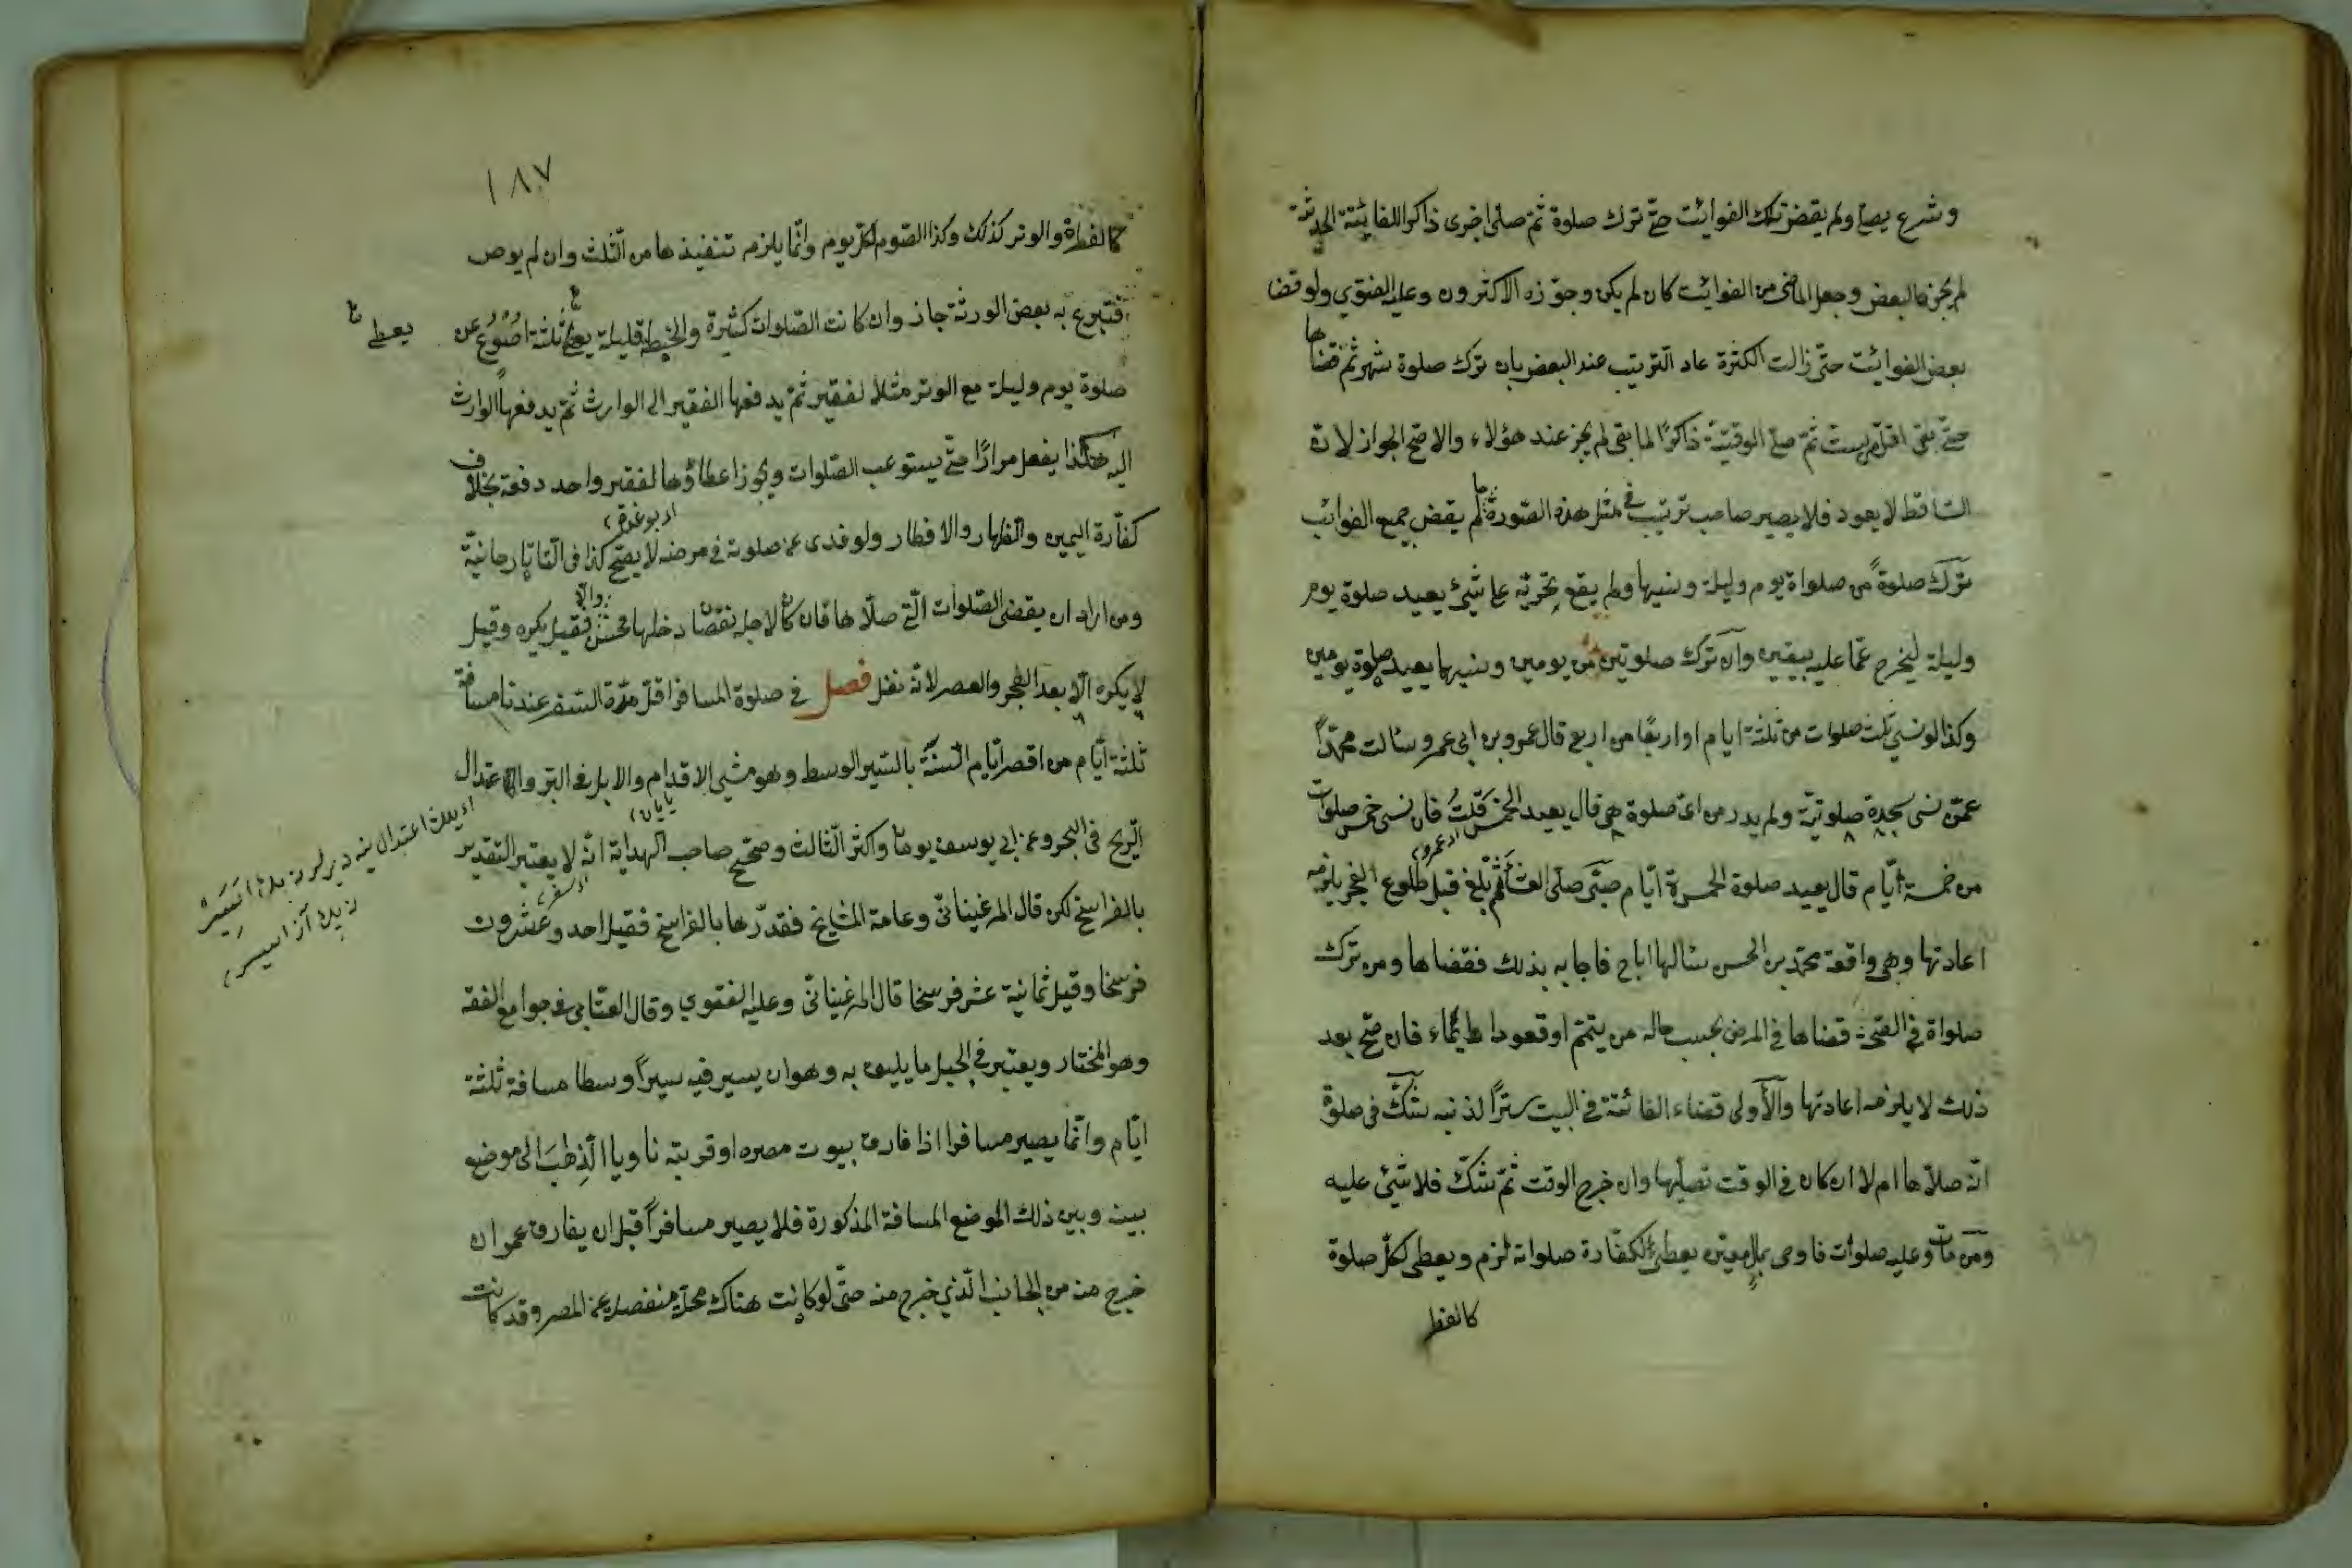 وشرع يصلي ولم يقض تلك الفوائت حتى ترك صلوة ثم صلى اخرى ذاكرا للفائتة الحديثة
لم يجز عند البعض وجعل الماضى من الفوائت كان لم يكن وجوزه الاكثرون وعليه الفتوى ولو قضا
بعض الفوائت حتى زالت الكثرة عاد الترتيب عند البعض بان ترك صلوة شهر ثم قضاها
حتى بقى اقل من ست ثم صلى الوقتية ذاكرًا لما بقى لم يجز عند هؤلاء والاصح الجواز لان
الساقط لا يعود فلا يصير صاحب ترتيب فى مثل هذه الصورة ما لم يقض جميع الفوائت
ترك صلوةً من صلواة يوم وليلة ونسيها ولم يقع تحرّيه على شيئ يعيد صلوة يوم
وليلة ليخرج عمّا عليه بيقين وان ترك صلوتين من يومين ونسيهما يعيد صلوة يومين
وكذا لو نسى ثلث صلوات من ثلثة ايام او اربعًا من اربع قال عمرو بن ابى عمرو سالت محمّدًا
عمّن نسى سجدة صلوتيّة ولم يدر من اىّ صلوة هى قال يعيد الخمس قلتُ فان نسى خمس صلوات
من خمسة ايّام قال يعيد صلوة الخمسة ايّام صبىّ صلّى العشاء ثم بلغ قبل طلوع الفجر يلزمه
اعادتها وهى واقعة محمّد بن الحسن سئالها اباح فاجابه بذلك فقضاها ومن ترك
صلواة فى الصّحّة قضاها فى المرض بحسب حاله من يتمّم او قعود او ايماء فان صحّ بعد
ذلك لا يلزمه اعادتها والأولى قضاء الفائتة فى البيت سترًا لذنبه شكّ فى صلوة
انّه صلاّها ام لا ان كان فى الوقت يصلّيها وان خرج الوقت ثمّ شكّ فلا شيئ عليه
ومن مات وعليه صلوات فاوصى بمال معيّن يعطى لكفّارة صلواته لزم ويعطى لكلّ صلوة
كالفط
١٨٧
كالفطرة والوتر كذلك وكذا الصّوم لكل يوم وانّما يلزم تنفيذها من الثّلث وان لم يوص
فتبرع به بعض الورثة جاز وان كانت الصّلوات كثيرة والحنطة قليلة يعطى ثلثة اصوُع عن
يعطى
صلوة يوم وليلة مع الوتر مثلًا لفقير ثمّ يدفعها الفقير الى الوارث ثمّ يدفعها الوارث
اليه هكذا يفعل مرارًا حتّى يستوعب الصّلوات ويجوز اعطاؤها لفقير واحد دفعة بخلاف
كفّارة اليمين والظهار والافطار ولو فدى عن صلوته فى مرضه لا يصّح كذا فى التّاتارخانيّة
ومن اراد ان يقضى الصّلوات الّتى صلاّها فان كان لاجل نقصان دخلها فحسن والاّ فقيل يكره وقيل
لا يكره الاّ بعد الفجر والعصر لانّه نفل فصل فى صلوة المسافر اقلّ مدّة السّفر عندنا مسافة
ثلثة ايّام من اقصر ايّام السّنة بالسّير الوسط وهو مشى الاقدام والابل فى البرّ والاعتدال
الرّيح فى البحر وعن ابى يوسف يومان واكثر الثّالث وصحّح صاحب الهداية انّه لا يعتبر التقدير
بالفراسخ لكن قال المرغينانىّ وعامة المشايخ فقدّرها بالفراسخ فقيل احد وعشرون
فرسخا وقيل ثمانية عشر فرسخا قال المرغينانىّ وعليه الفتوى وقال العتّابى فى جوامع الفقه
وهو المختار ويعتبر فى الجبل ما يليق به وهو ان يسير فيه سيرًا وسطا مسافة ثلثة
ايّام وانّما يصير مسافرا اذا فارق بيوت مصره او قريته ناويا الذّهاب الى موضع
بينه وبين ذلك الموضع المسافة المذكورة فلا يصير مسافرًا قبل ان يفارق عمران
خرج منه من الجانب الّذى خرج منه حتّى لو كانت هناك محلّة منفصلة عن المصر وقد كانت